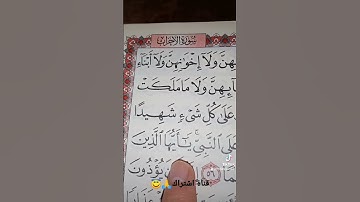 سُورَةُ الأَحْزَابِ
بِهِنَّ وَلَا إِخْوَٰنِهِنَّ وَلَا أَبْنَآءِ
آئِهِنَّ وَلَا مَا مَلَكَتْ
عَلَىٰ كُلِّ شَيْءٍ شَهِيدًا
عَلَى النَّبِيِّ يَـٰٓأَيُّهَا الَّذِينَ
مًا ٥٦ يُؤْذُونَ
قناة اشتراك